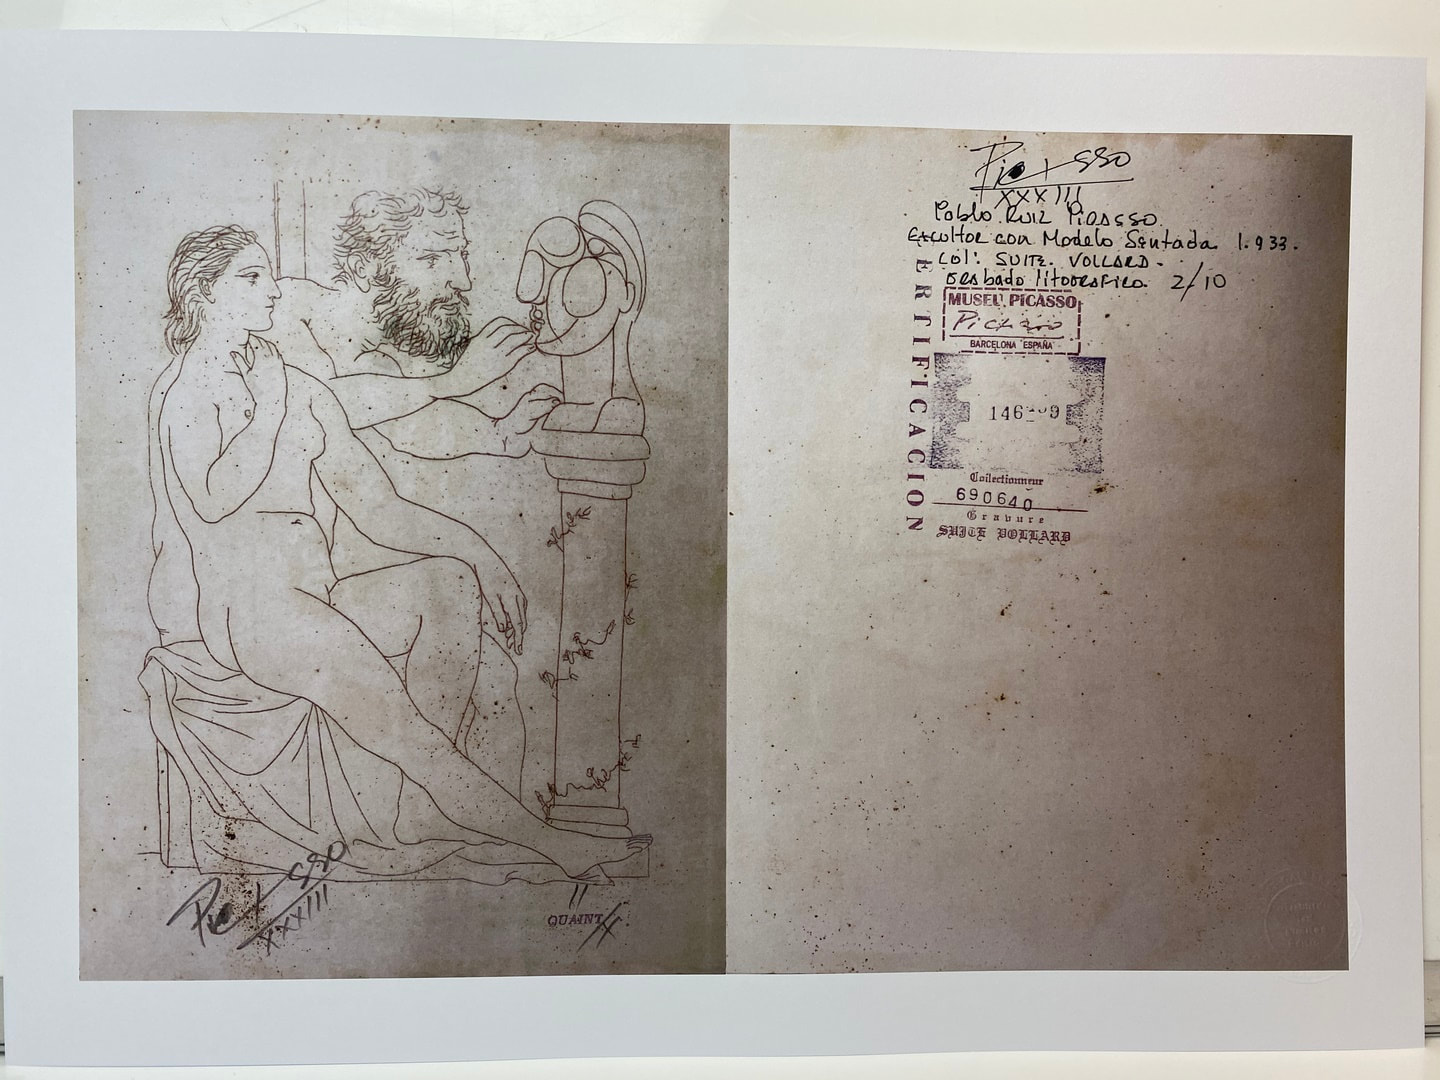 Picasso
XXXIII
QUAINT
Picasso
XXXIII
Pablo Ruiz Picasso
Escultor con Modelo Sentada 1.933.
Col: SUITE. VOLLARD.-
Grabado litografico 2/10
CERTIFICACION
MUSEU PICASSO
Picasso
BARCELONA ESPAÑA
Collectionneur
690640
Gravure
SUITE VOLLARD